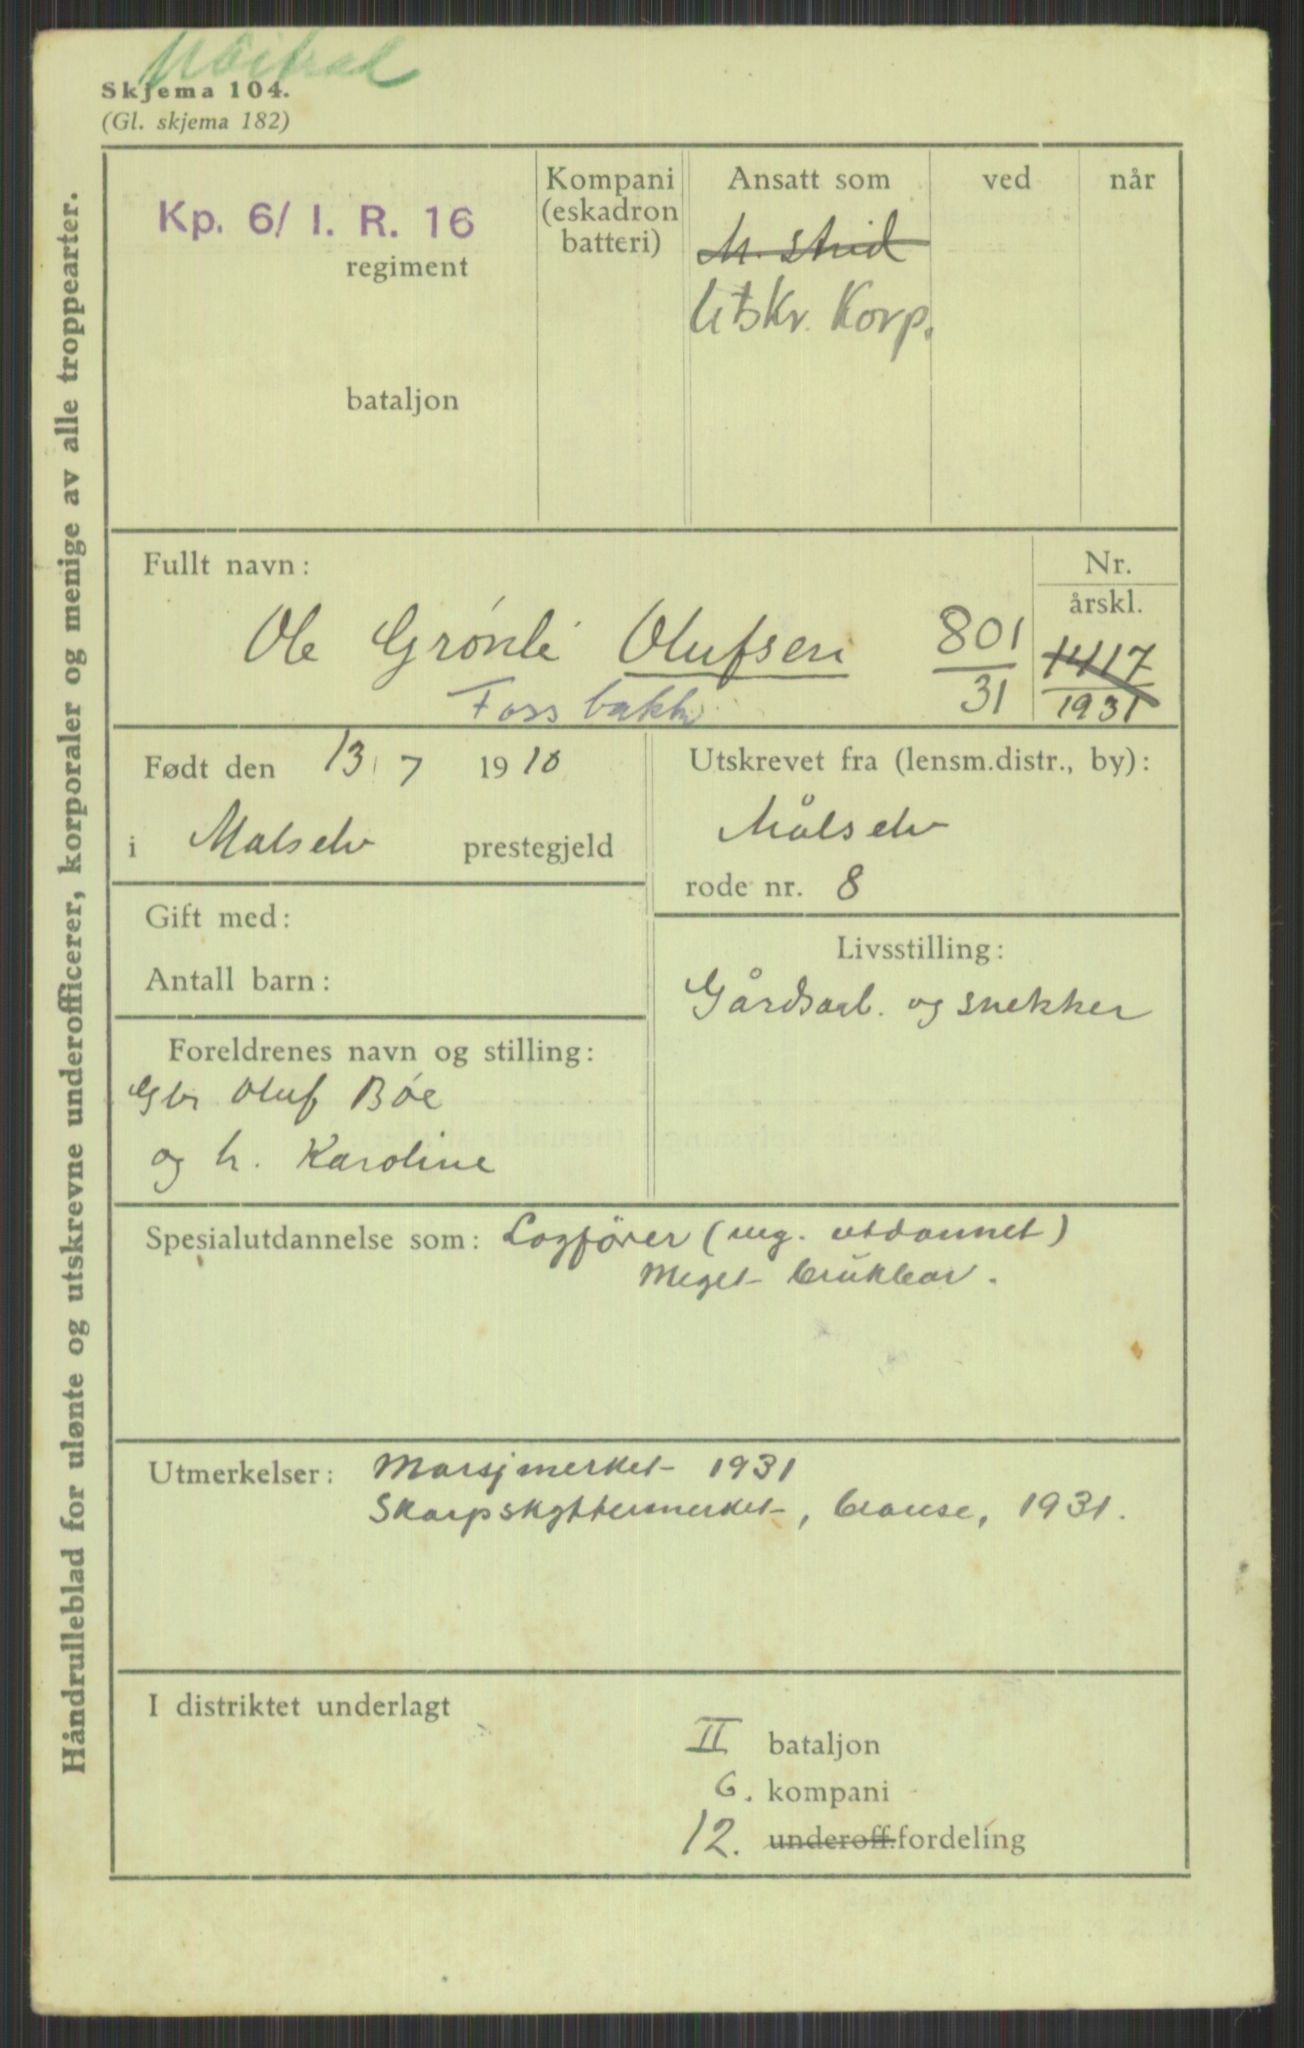 Skjema 104.
(Gl. skjema 182)
Håndrulleblad for ulønte og utskrevne underofficerer, korporaler og menige av alle troppearter.
Kp. 6/ I. R. 16
regiment
bataljon
Kompani
(eskadron
batteri)
Ansatt som
M. strid
Utskr. Korp.
ved
når
Fullt navn:
Ole Grønli Olufsen
Fossbakk
801
31
Nr.
årskl.
1417
1931
Født den 13/7 1910
i Målselv prestegjeld
Utskrevet fra (lensm.distr., by):
Målselv
rode nr. 8
Gift med:
Antall barn:
Livsstilling:
Gårdsarb. og snekker
Foreldrenes navn og stilling:
Gbr Oluf Bøe
og h. Karoline
Spesialutdannelse som: Lagfører (reg. utdannet)
Meget brukbar.
Utmerkelser: Marsjmerket 1931
Skarpskyttermerket, bronse, 1931.
I distriktet underlagt
II bataljon
6. kompani
12. underoff.fordeling